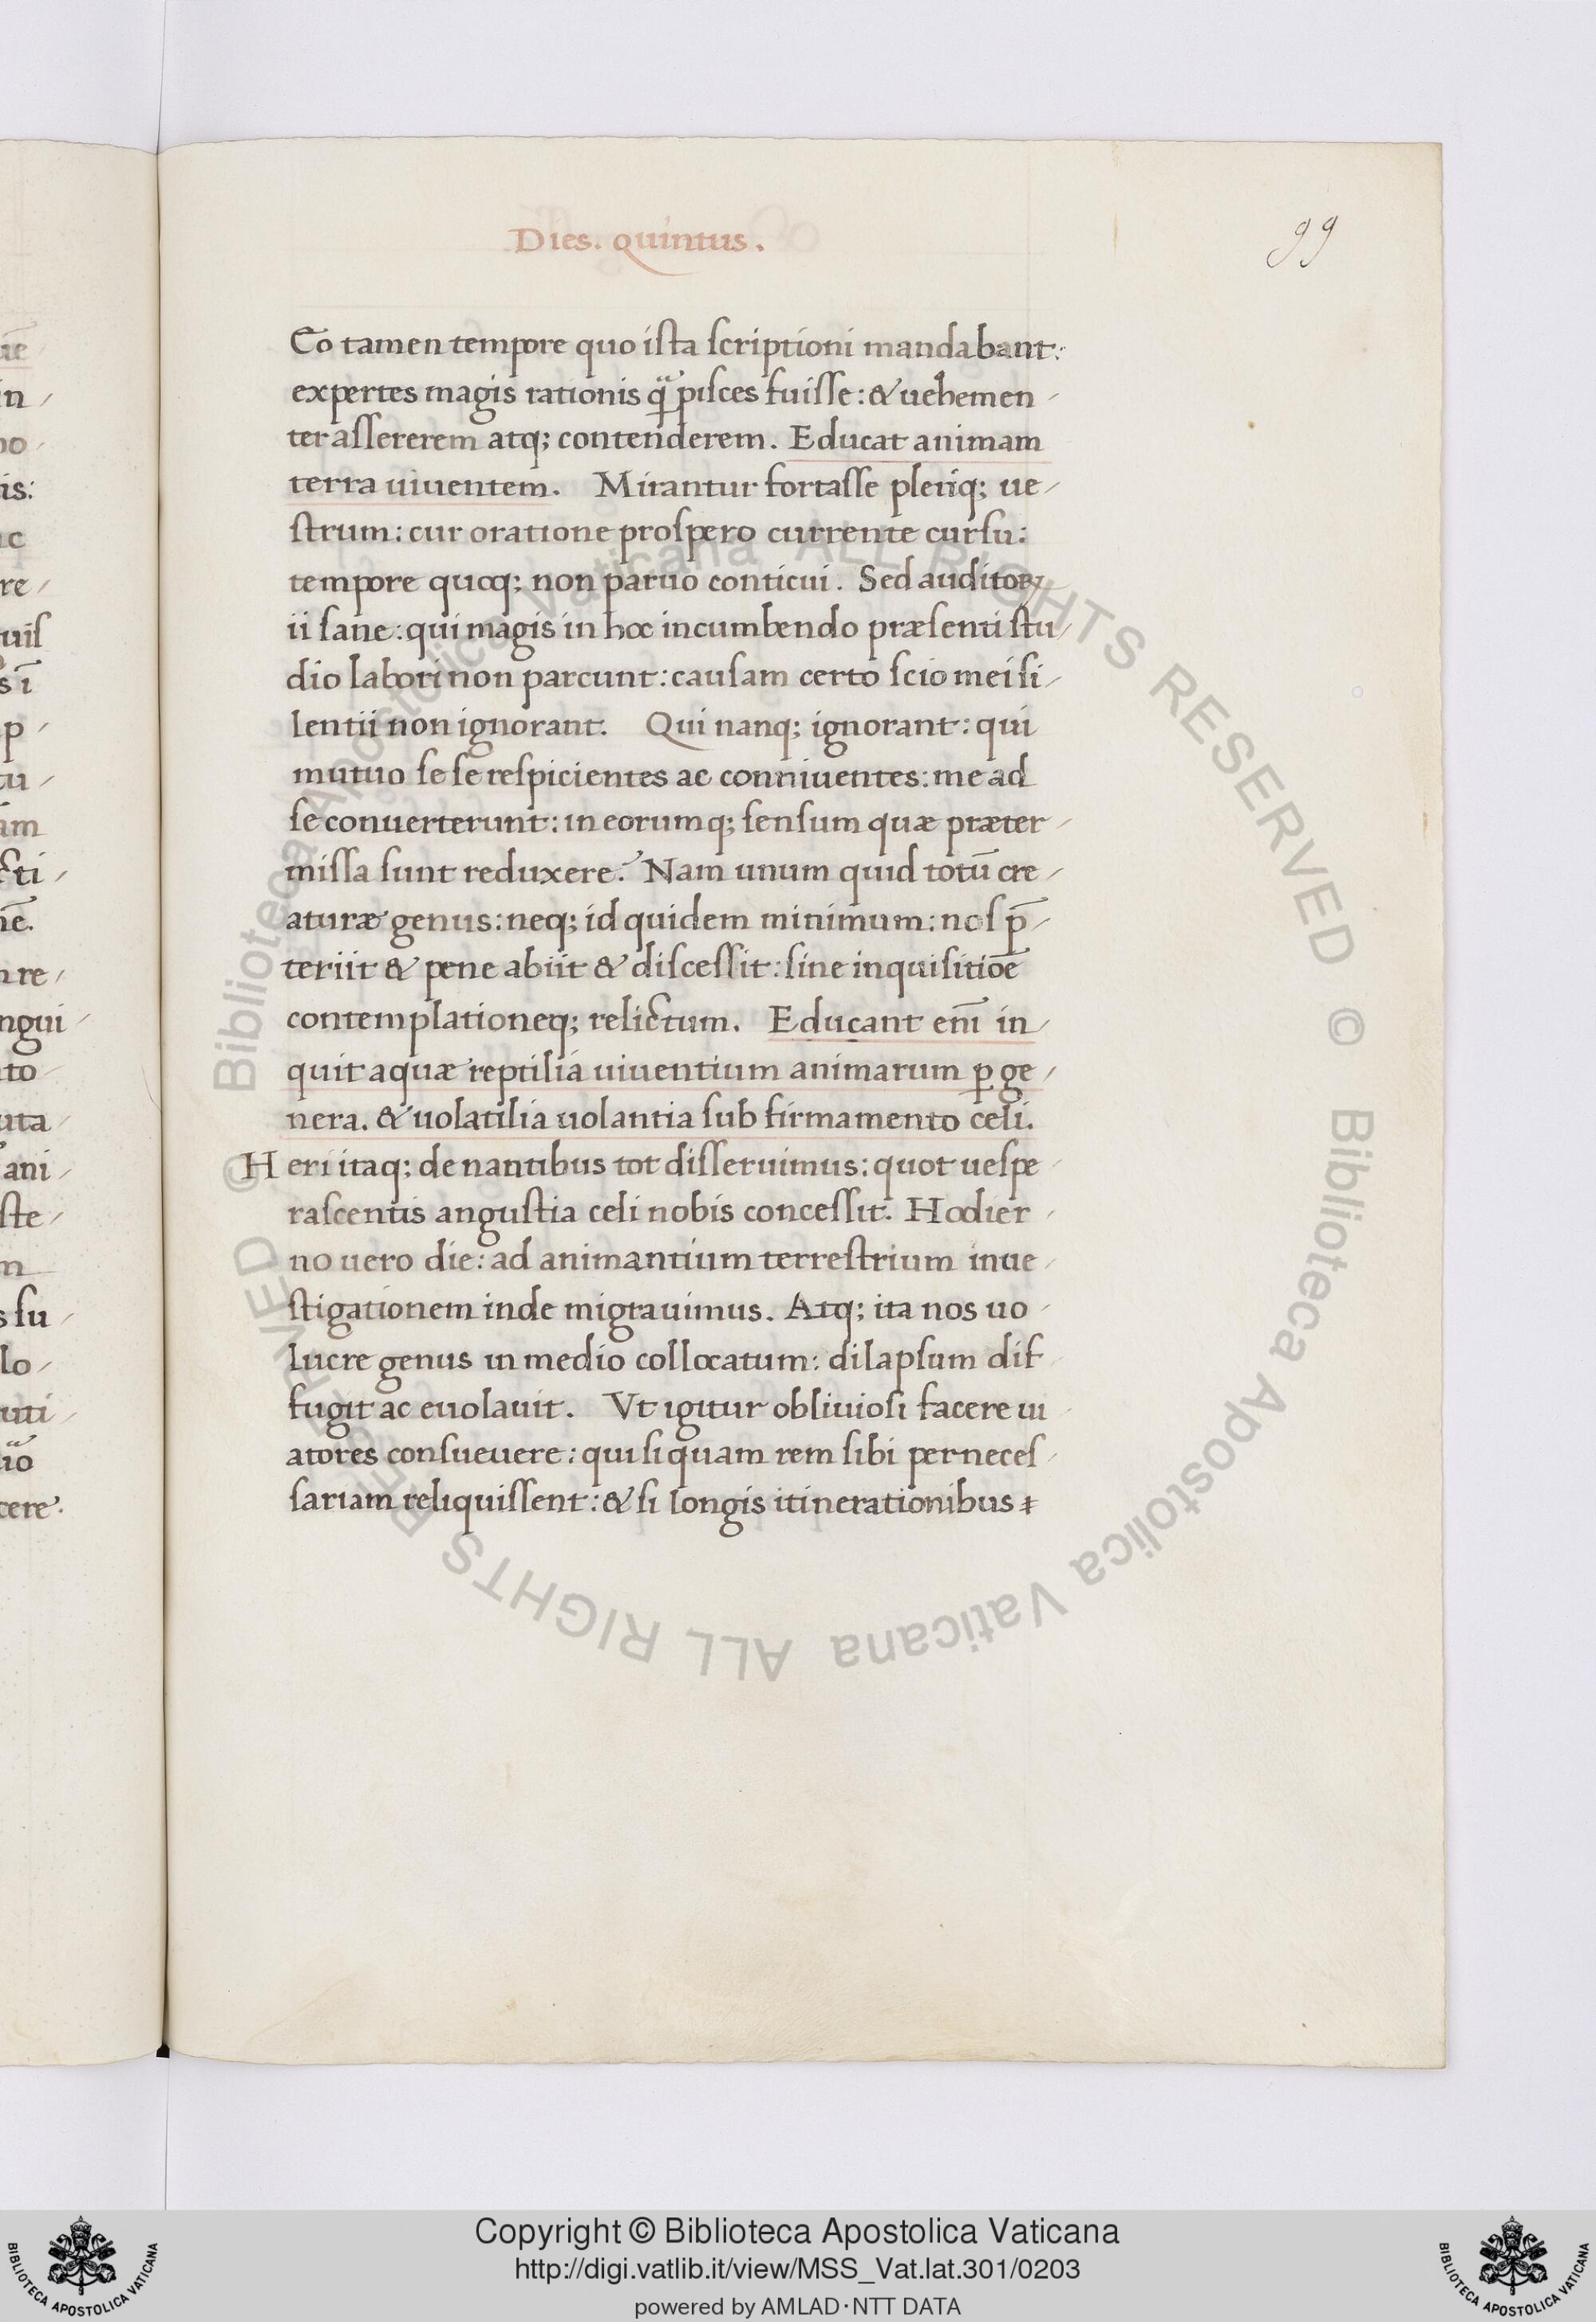 Dies. quintus.
99
Eo tamen tempore quo ista scriptioni mandabant:
expertes magis rationis q̃ pisces fuisse: & uehemen
ter assererem atq; contenderem. Educat animam
terra uiuentem. Mirantur fortasse pleriq; ue
strum: cur oratione prospero currente cursu:
tempore quoq; non paruo conticui. Sed auditoꝝ
ii sane: qui magis in hoc incumbendo præsenti stu
dio labori non parcunt: causam certo scio mei si
lentii non ignorant. Qui nanq; ignorant: qui
mutuo se se respicientes ac conniuentes: me ad
se conuerterunt: in eorumq; sensum quæ præter
missa sunt reduxere? Nam unum quid totũ cre
aturæ genus: neq; id quidem minimum: nos p̄
teriit & pene abiit & discessit: sine inquisitiōe
contemplationeq; relictum. Educant eni᷃ in
quit aquæ reptilia uiuentium animarum ꝑ ge
nera. & uolatilia uolantia sub firmamento celi.
Heri itaq; de nantibus tot disseruimus: quot uespe
rascentis angustia celi nobis concessit. Hodier
no uero die: ad animantium terrestrium inue
stigationem inde migrauimus. Atq; ita nos uo
lucre genus in medio collocatum: dilapsum dif
fugit ac euolauit. Vt igitur obliuiosi facere ui
atores consueuere: qui si quam rem sibi perneces
sariam reliquissent: & si longis itinerationibus
© Biblioteca Apostolica Vaticana ALL RIGHTS RESERVED © Biblioteca Apostolica Vaticana ALL RIGHTS RESERVED
Copyright © Biblioteca Apostolica Vaticana
http://digi.vatlib.it/view/MSS_Vat.lat.301/0203
powered by AMLAD·NTT DATA
BIBLIOTECA APOSTOLICA VATICANA
BIBLIOTECA APOSTOLICA VATICANA